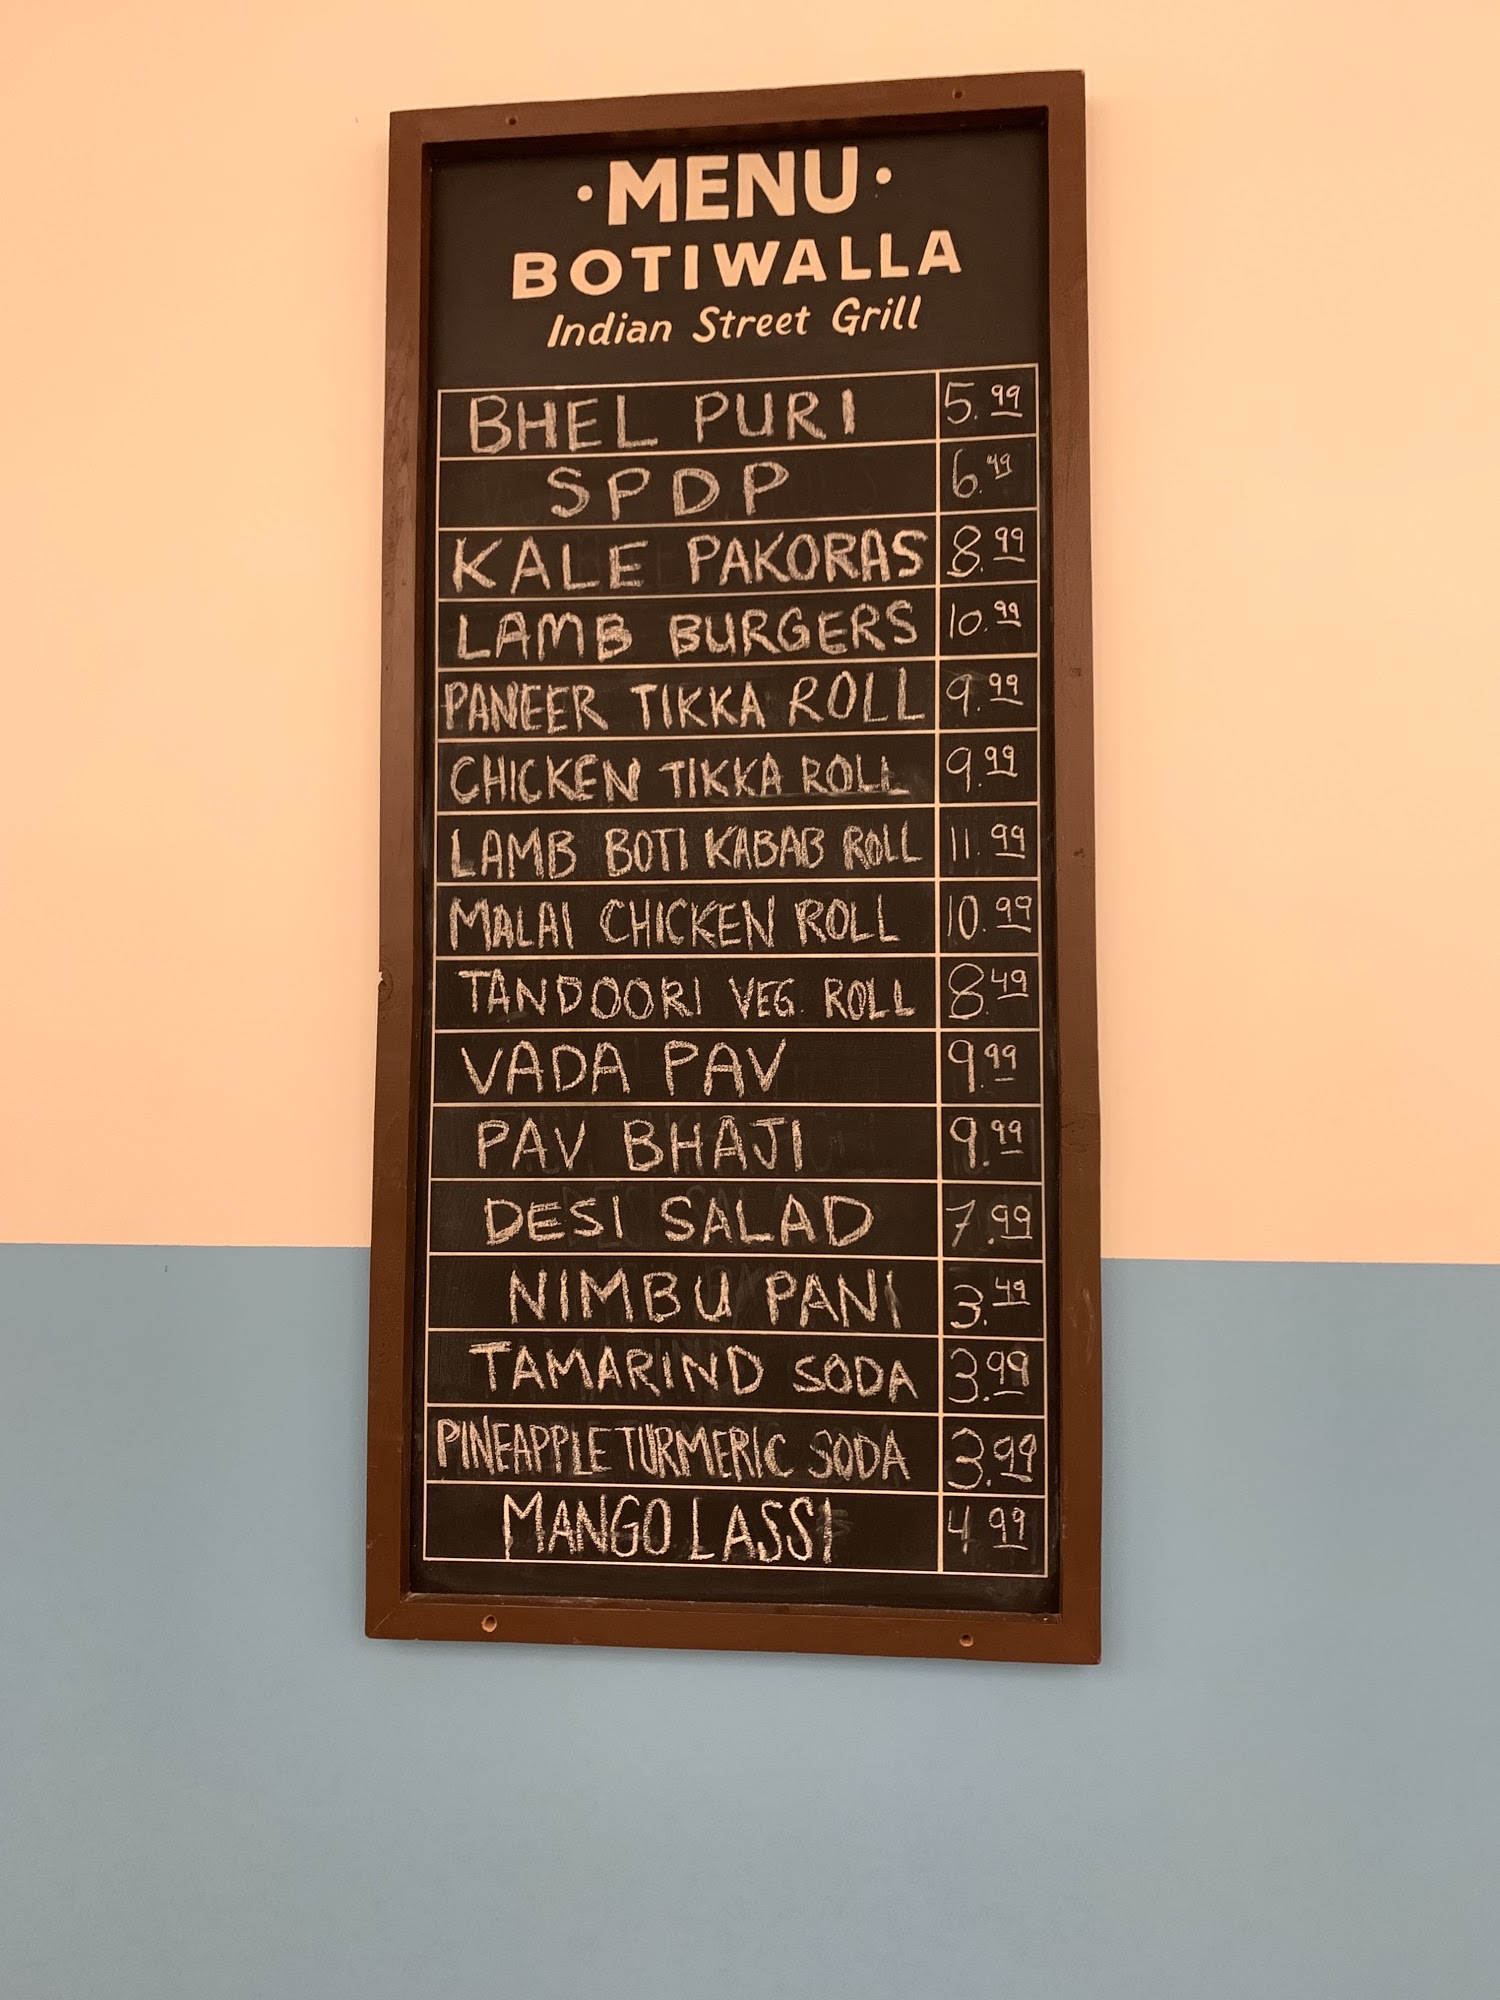 ·MENU·
BOTIWALLA
Indian Street Grill
BHEL PURI 5.99
SPDP 6.49
KALE PAKORAS 8.99
LAMB BURGERS 10.99
PANEER TIKKA ROLL 9.99
CHICKEN TIKKA ROLL 9.99
LAMB BOTI KABAB ROLL 11.99
MALAI CHICKEN ROLL 10.99
TANDOORI VEG. ROLL 8.49
VADA PAV 9.99
PAV BHAJI 9.99
DESI SALAD 7.99
NIMBU PANI 3.49
TAMARIND SODA 3.99
PINEAPPLE TURMERIC SODA 3.99
MANGO LASSI 4.99